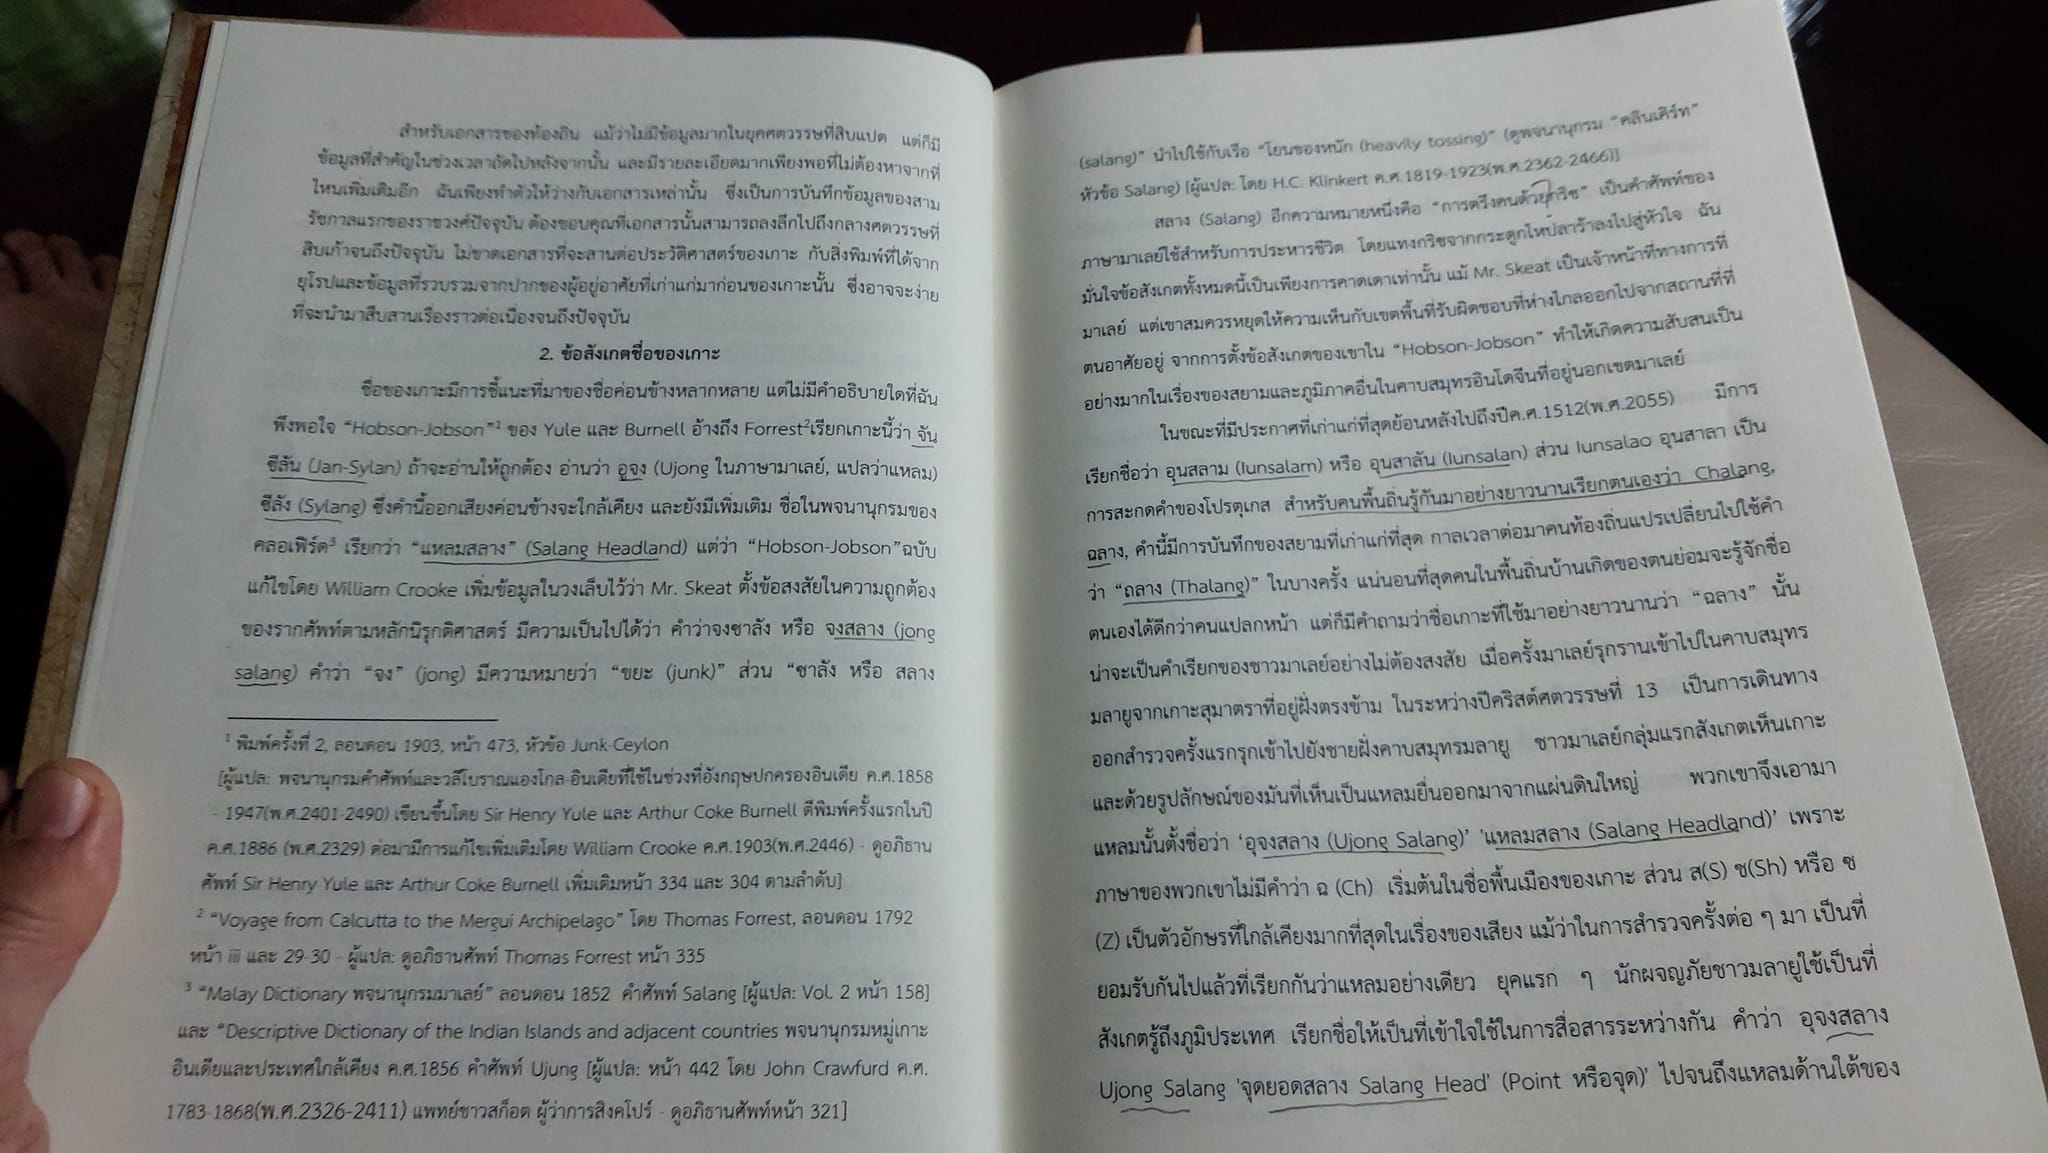 สำหรับเอกสารของท้องถิ่น แม้ว่าไม่มีข้อมูลมากในยุคศตวรรษที่สิบแปด แต่ก็มี
ข้อมูลที่สำคัญในช่วงเวลาถัดไปหลังจากนั้น และมีรายละเอียดมากเพียงพอที่ไม่ต้องหาจากที่
ไหนเพิ่มเติมอีก ฉันเพียงทำตัวให้ว่างกับเอกสารเหล่านั้น ซึ่งเป็นการบันทึกข้อมูลของสาม
รัชกาลแรกของราชวงศ์ปัจจุบัน ต้องขอบคุณที่เอกสารนั้นสามารถลงลึกไปถึงกลางศตวรรษที่
สิบเก้าจนถึงปัจจุบัน ไม่ขาดเอกสารที่จะสานต่อประวัติศาสตร์ของเกาะ กับสิ่งพิมพ์ที่ได้จาก
ยุโรปและข้อมูลที่รวบรวมจากปากของผู้อยู่อาศัยที่เก่าแก่มาก่อนของเกาะนั้น ซึ่งอาจจะง่าย
ที่จะนำมาสืบสานเรื่องราวต่อเนื่องจนถึงปัจจุบัน
2. ข้อสังเกตชื่อของเกาะ
ชื่อของเกาะมีการชี้แนะที่มาของชื่อค่อนข้างหลากหลาย แต่ไม่มีคำอธิบายใดที่ฉัน
พึงพอใจ “Hobson-Jobson”1 ของ Yule และ Burnell อ้างถึง Forrest2เรียกเกาะนี้ว่า จัน
ซีลัน (Jan-Sylan) ถ้าจะอ่านให้ถูกต้อง อ่านว่า อูจง (Ujong ในภาษามาเลย์, แปลว่าแหลม)
ซีลัง (Sylang) ซึ่งคำนี้ออกเสียงค่อนข้างจะใกล้เคียง และยังมีเพิ่มเติม ชื่อในพจนานุกรมของ
คลอเฟิร์ด3 เรียกว่า “แหลมสลาง” (Salang Headland) แต่ว่า “Hobson-Jobson”ฉบับ
แก้ไขโดย William Crooke เพิ่มข้อมูลในวงเล็บไว้ว่า Mr. Skeat ตั้งข้อสงสัยในความถูกต้อง
ของรากศัพท์ตามหลักนิรุกติศาสตร์ มีความเป็นไปได้ว่า คำว่าจงซาลัง หรือ จงสลาง (jong
salang) คำว่า “จง” (jong) มีความหมายว่า “ขยะ (junk)” ส่วน “ซาลัง หรือ สลาง
1 พิมพ์ครั้งที่ 2, ลอนดอน 1903, หน้า 473, หัวข้อ Junk-Ceylon
[ผู้แปล: พจนานุกรมคำศัพท์และวลีโบราณแองโกล-อินเดียที่ใช้ในช่วงที่อังกฤษปกครองอินเดีย ค.ศ.1858
- 1947(พ.ศ.2401-2490) เขียนขึ้นโดย Sir Henry Yule และ Arthur Coke Burnell ตีพิมพ์ครั้งแรกในปี
ค.ศ.1886 (พ.ศ.2329) ต่อมามีการแก้ไขเพิ่มเติมโดย William Crooke ค.ศ.1903(พ.ศ.2446) - ดูอภิธาน
ศัพท์ Sir Henry Yule และ Arthur Coke Burnell เพิ่มเติมหน้า 334 และ 304 ตามลำดับ]
2 “Voyage from Calcutta to the Mergui Archipelago” โดย Thomas Forrest, ลอนดอน 1792
หน้า iii และ 29-30 - ผู้แปล: ดูอภิธานศัพท์ Thomas Forrest หน้า 335
3 “Malay Dictionary พจนานุกรมมาเลย์” ลอนดอน 1852 คำศัพท์ Salang [ผู้แปล: Vol. 2 หน้า 158]
และ “Descriptive Dictionary of the Indian Islands and adjacent countries พจนานุกรมหมู่เกาะ
อินเดียและประเทศใกล้เคียง ค.ศ.1856 คำศัพท์ Ujung [ผู้แปล: หน้า 442 โดย John Crawfurd ค.ศ.
1783-1868(พ.ศ.2326-2411) แพทย์ชาวสก็อต ผู้ว่าการสิงคโปร์ - ดูอภิธานศัพท์หน้า 321]
(salang)” นำไปใช้กับเรือ “โยนของหนัก (heavily tossing)” (ดูพจนานุกรม “คลินเคิร์ท”
หัวข้อ Salang) [ผู้แปล: โดย H.C. Klinkert ค.ศ.1819-1923(พ.ศ.2362-2466)]
สลาง (Salang) อีกความหมายหนึ่งคือ “การตรึงคนด้วยกริช” เป็นคำศัพท์ของ
ภาษามาเลย์ใช้สำหรับการประหารชีวิต โดยแทงกริชจากกระดูกไหปลาร้าลงไปสู่หัวใจ ฉัน
มั่นใจข้อสังเกตทั้งหมดนี้เป็นเพียงการคาดเดาเท่านั้น แม้ Mr. Skeat เป็นเจ้าหน้าที่ทางการที่
มาเลย์ แต่เขาสมควรหยุดให้ความเห็นกับเขตพื้นที่รับผิดชอบที่ห่างไกลออกไปจากสถานที่ที่
ตนอาศัยอยู่ จากการตั้งข้อสังเกตของเขาใน “Hobson-Jobson” ทำให้เกิดความสับสนเป็น
อย่างมากในเรื่องของสยามและภูมิภาคอื่นในคาบสมุทรอินโดจีนที่อยู่นอกเขตมาเลย์
ในขณะที่มีประกาศที่เก่าแก่ที่สุดย้อนหลังไปถึงปีค.ศ.1512(พ.ศ.2055) มีการ
เรียกชื่อว่า อุนสลาม (Iunsalam) หรือ อุนสาลัน (Iunsalan) ส่วน Iunsalao อุนสาลา เป็น
การสะกดคำของโปรตุเกส สำหรับคนพื้นถิ่นรู้กันมาอย่างยาวนานเรียกตนเองว่า Chalang,
ฉลาง, คำนี้มีการบันทึกของสยามที่เก่าแก่ที่สุด กาลเวลาต่อมาคนท้องถิ่นแปรเปลี่ยนไปใช้คำ
ว่า “ถลาง (Thalang)” ในบางครั้ง แน่นอนที่สุดคนในพื้นถิ่นบ้านเกิดของตนย่อมจะรู้จักชื่อ
ตนเองได้ดีกว่าคนแปลกหน้า แต่ก็มีคำถามว่าชื่อเกาะที่ใช้มาอย่างยาวนานว่า “ฉลาง” นั้น
น่าจะเป็นคำเรียกของชาวมาเลย์อย่างไม่ต้องสงสัย เมื่อครั้งมาเลย์รุกรานเข้าไปในคาบสมุทร
มลายูจากเกาะสุมาตราที่อยู่ฝั่งตรงข้าม ในระหว่างปีคริสต์ศตวรรษที่ 13 เป็นการเดินทาง
ออกสำรวจครั้งแรกรุกเข้าไปยังชายฝั่งคาบสมุทรมลายู ชาวมาเลย์กลุ่มแรกสังเกตเห็นเกาะ
และด้วยรูปลักษณ์ของมันที่เห็นเป็นแหลมยื่นออกมาจากแผ่นดินใหญ่ พวกเขาจึงเอามา
แหลมนั้นตั้งชื่อว่า ‘อุจงสลาง (Ujong Salang)’ ‘แหลมสลาง (Salang Headland)’ เพราะ
ภาษาของพวกเขาไม่มีคำว่า ฉ (Ch) เริ่มต้นในชื่อพื้นเมืองของเกาะ ส่วน ส(S) ช(Sh) หรือ ซ
(Z) เป็นตัวอักษรที่ใกล้เคียงมากที่สุดในเรื่องของเสียง แม้ว่าในการสำรวจครั้งต่อ ๆ มา เป็นที่
ยอมรับกันไปแล้วที่เรียกกันว่าแหลมอย่างเดียว ยุคแรก ๆ นักผจญภัยชาวมลายูใช้เป็นที่
สังเกตรู้ถึงภูมิประเทศ เรียกชื่อให้เป็นที่เข้าใจใช้ในการสื่อสารระหว่างกัน คำว่า อุจงสลาง
Ujong Salang ‘จุดยอดสลาง Salang Head’ (Point หรือจุด)’ ไปจนถึงแหลมด้านใต้ของ